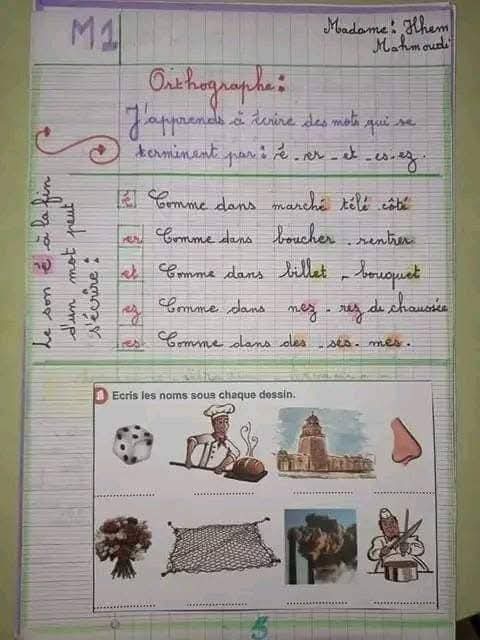 M1
Madame: Ilhem
Mahmoudi
Orthographe:
J'apprends à écrire des mots qui se
terminent par: é - er - et - es - ez.
Le son é à la fin
d'un mot peut
s'écrire:
é Comme dans marché télé côté
er Comme dans boucher - rentrer
et Comme dans billet - bouquet
ez Comme dans nez - rez de chaussée
es Comme dans des - ses - mes.
Ecris les noms sous chaque dessin.